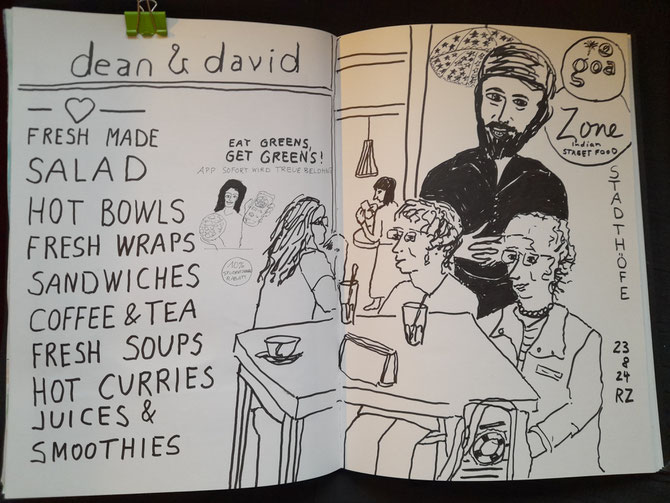 dean & david
FRESH MADE
SALAD
HOT BOWLS
FRESH WRAPS
SANDWICHES
COFFEE & TEA
FRESH SOUPS
HOT CURRIES
JUICES &
SMOOTHIES
EAT GREENS,
GET GREENS!
APP SOFORT WIRD TREUE BELOHNT
goa
Zone
Indian
STREET FOOD
STADTHÖFE
23
8
24
RZ